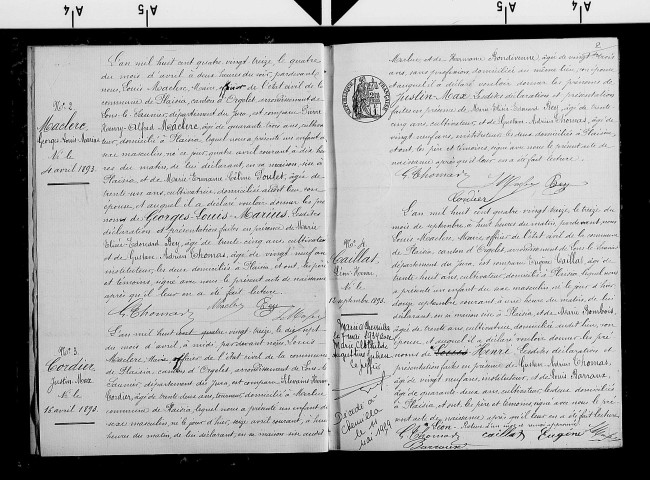 A 4
A 5
A 5
A 4
No. 2
Maclerc
Georges Louis Marius
Né le
4 avril 1893.
L'an mil huit cent quatre vingt treize, le quatre
du mois d'avril à deux heures du soir, pardevant
nous, Louis Maclerc, Maire officier de l'état civil de la
commune de Plaisia, canton d'Orgelet, arrondissement de
Lons le Saunier, département du Jura, est comparu Pierre
Alfred Maclerc, âgé de quarante trois ans, cultiva-
teur, domicilié à Plaisia, lequel nous a présenté un enfant du
sexe masculin, né ce jour quatre avril courant à dix heu-
res du matin, de lui déclarant, en sa maison sise à
Plaisia et de Marie Ermaine Céline Poulet, âgée de
trente un ans, cultivatrice, domiciliée audit lieu, son
épouse, et auquel il a déclaré vouloir donner les pré-
noms de Georges-Louis-Marius. Lesdites
déclaration et présentation faites en présence de Marie
Elisée Edouard Rey, âgé de trente-cinq ans, cultivateur
et de Gustave Adrien Thomas, âgé de vingt neuf ans
instituteur, les deux domiciliés à Plaisia, et ont, les père
et témoins, signé avec nous le présent acte de naissance
après qu'il leur en a été fait lecture.
G. Thomas Maclerc Rey
No. 3
Cordier
Justin Max
Né le
16 avril 1893.
L'an mil huit cent quatre-vingt treize, le dix sept
du mois d'avril à midi, pardevant nous Louis
Maclerc, Maire officier de l'état civil de la commune
de Plaisia, canton d'Orgelet, arrondissement de Lons le
Saunier, département du Jura, est comparu
Cordier, âgé de trente deux ans, domicilié à
commune de Plaisia, lequel nous a présenté un enfant du
sexe masculin, né le jour d'hier, seize avril courant, à
heures du matin, de lui déclarant, en sa maison sise audit
2
et de Rondevenne, âgée de vingt
ans, sans profession, domiciliée au même lieu, son épouse
auquel il a déclaré vouloir donner les prénoms de
Justin-Max. Lesdites déclaration et présentation
faites en présence de Marie Elisée Edouard Rey, âgé de trente-
ans, cultivateur, et de Gustave Adrien Thomas, âgé de
vingt neuf ans, instituteur, les deux domiciliés à Plaisia,
et ont les père et témoins, signé avec nous le présent acte de
naissance après qu'il leur en a été fait lecture.
G. Thomas Rey
Cordier
No. 4
Caillat
Léon Henri
Né le
12 septembre 1893.
Marié à Chevilla
le 7 mai 1921 avec
Marie Clothilde
Augustine
Le greffier
Décédé à
Chevilla
le 11
mai 1959
L'an mil huit cent quatre vingt treize, le treize du
mois de septembre, à huit heures du matin, pardevant nous
Louis Maclerc, Maire officier de l'état civil de la commune
de Plaisia, canton d'Orgelet, arrondissement de Lons le Saunier
département du Jura, est comparu Eugène Caillat, âgé de
trente-huit ans, cultivateur, domicilié à Plaisia, lequel nous
a présenté un enfant du sexe masculin, né le jour d'hier
douze septembre courant à une heure du matin, de lui
déclarant, en sa maison sise à Plaisia, et de Marie
âgée de trente ans, cultivatrice, domiciliée audit lieu, son
épouse, et auquel il a déclaré vouloir donner les pré-
noms de Henri. Lesdites déclaration et présentation
faites en présence de Gustave Adrien Thomas,
âgé de vingt neuf ans, instituteur, et de Louis Barraux,
âgé de quarante deux ans, cultivateur, les deux domiciliés
à Plaisia, et ont, les père et témoins, signé avec nous le pré-
sent acte de naissance après qu'il leur en a été fait lecture.
Léon
G. Thomas Caillat Eugène
Barraux